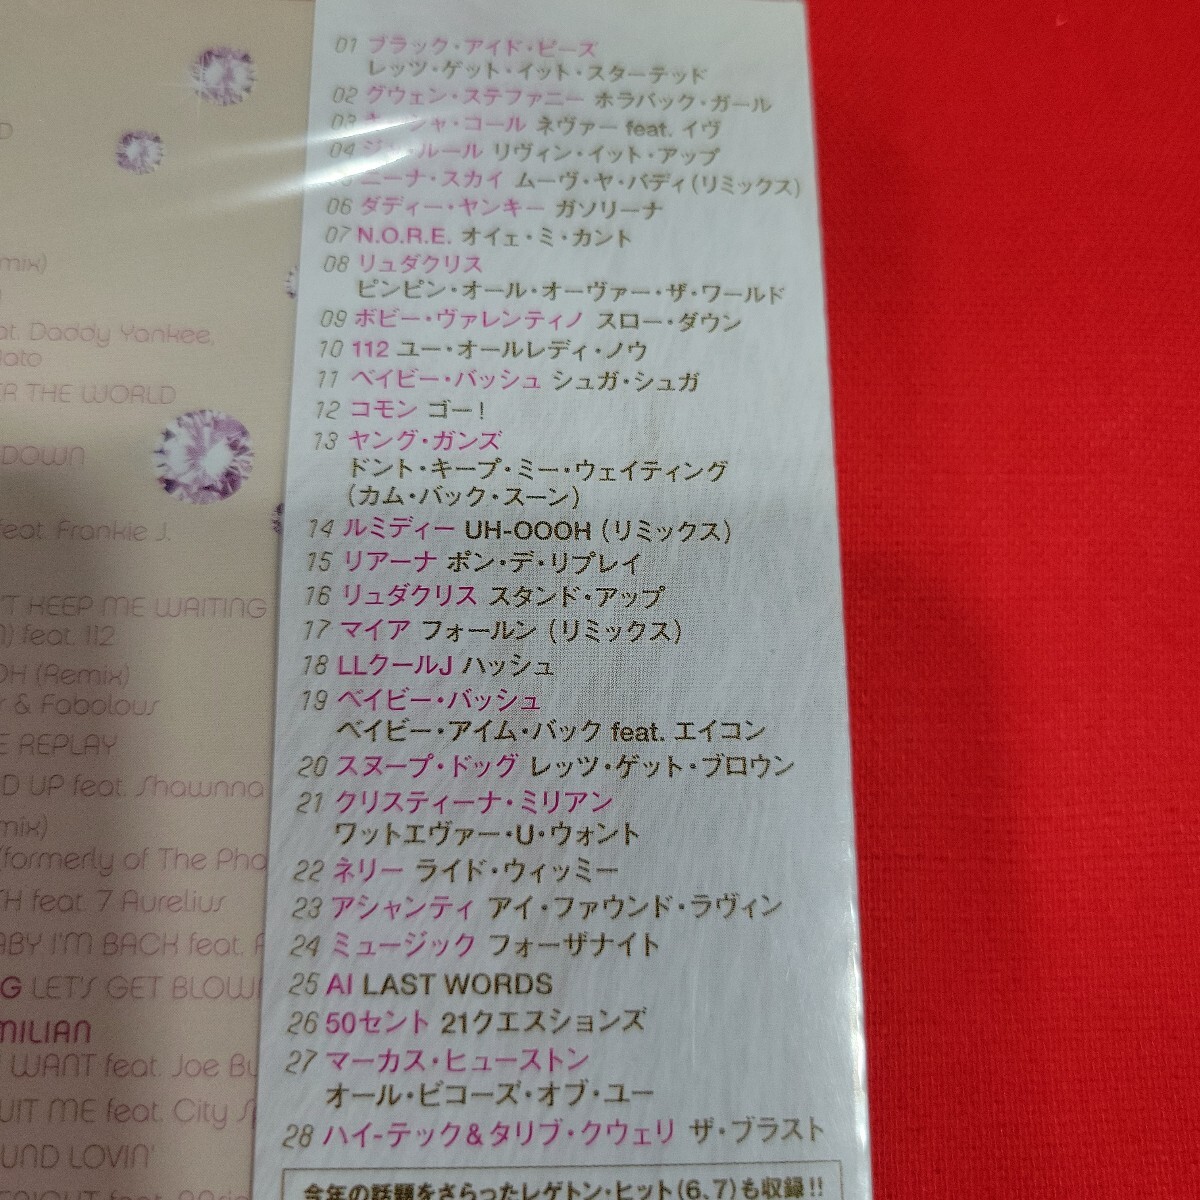 01 ブラック・アイド・ピーズ
レッツ・ゲット・イット・スターテッド
02 グウェン・ステファニー ホラバック・ガール
03 キーシャ・コール ネヴァー feat. イヴ
04 ジャ・ルール リヴィン・イット・アップ
ニーナ・スカイ ムーヴ・ヤ・バディ(リミックス)
06 ダディー・ヤンキー ガソリーナ
07 N.O.R.E. オイェ・ミ・カント
08 リュダクリス
ピンピン・オール・オーヴァー・ザ・ワールド
09 ボビー・ヴァレンティノ スロー・ダウン
10 112 ユー・オールレディ・ノウ
11 ベイビー・バッシュ シュガ・シュガ
12 コモン ゴー!
13 ヤング・ガンズ
ドント・キープ・ミー・ウェイティング
(カム・バック・スーン)
14 ルミディー UH-OOOH (リミックス)
15 リアーナ ポン・デ・リプレイ
16 リュダクリス スタンド・アップ
17 マイア フォールン (リミックス)
18 LLクールJ ハッシュ
19 ベイビー・バッシュ
ベイビー・アイム・バック feat. エイコン
20 スヌープ・ドッグ レッツ・ゲット・ブロウン
21 クリスティーナ・ミリアン
ワットエヴァー・U・ウォント
22 ネリー ライド・ウィッミー
23 アシャンティ アイ・ファウンド・ラヴィン
24 ミュージック フォーザナイト
25 AI LAST WORDS
26 50セント 21クエスションズ
27 マーカス・ヒューストン
オール・ビコーズ・オブ・ユー
28 ハイ-テック&タリブ・クウェリ ザ・ブラスト
今年の話題をさらったレゲトン・ヒット(6、7)も収録!!
D
mix)
at. Daddy Yankee,
ER THE WORLD
DOWN
feat. Frankie J.
'T KEEP ME WAITING
feat. 112
OH (Remix)
& Fabolous
E REPLAY
D UP feat. Shawnna
mix)
(formerly of The Pha
TH feat. 7 Aurelius
ABY I'M BACK feat.
G LET'S GET BLOW
MILIAN
WANT feat. Joe Bu
UIT ME feat. City S
UND LOVIN'